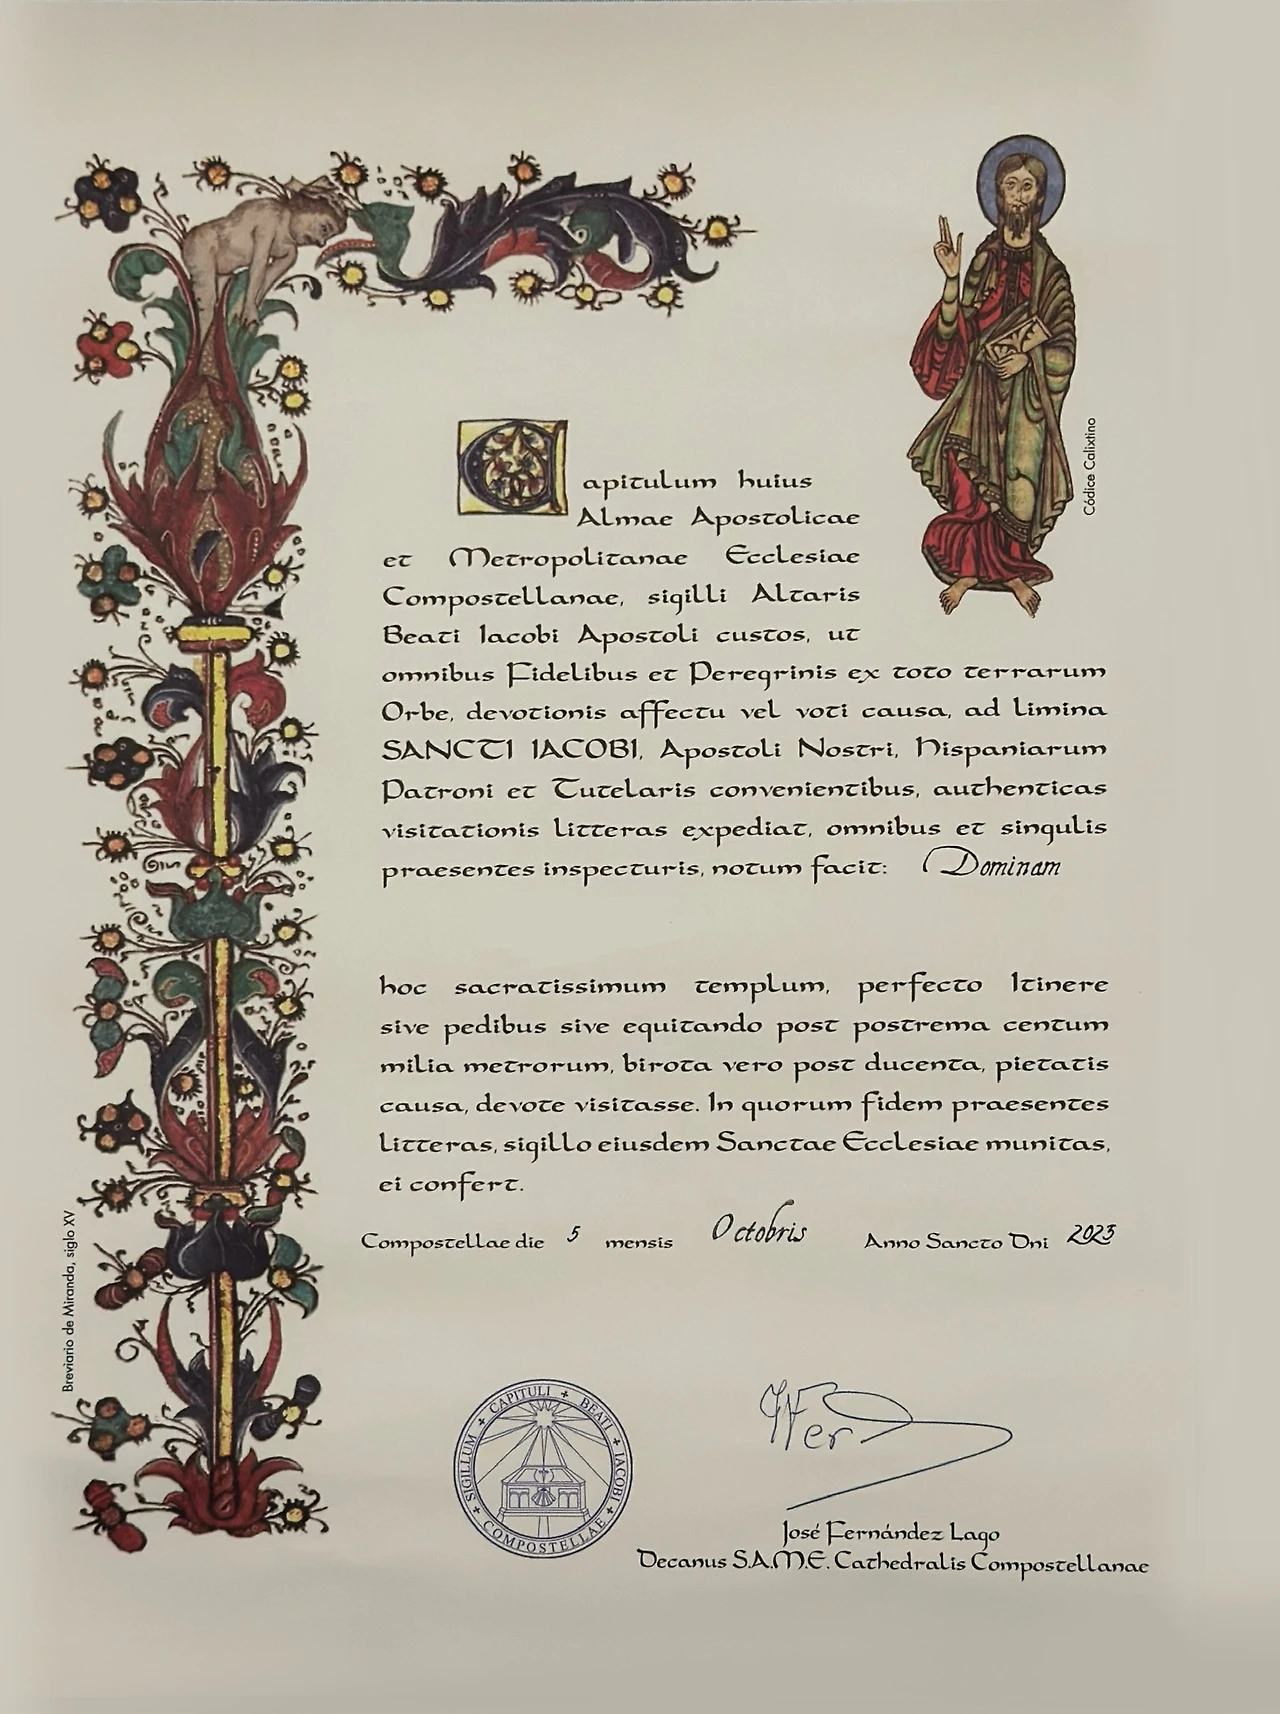 Códice Calixtino
Capitulum huius
Almae Apostolicae
et Metropolitanae Ecclesiae
Compostellanae, sigilli Altaris
Beati Iacobi Apostoli custos, ut
omnibus Fidelibus et Peregrinis ex toto terrarum
Orbe, devotionis affectu vel voti causa, ad limina
SANCTI IACOBI, Apostoli Nostri, Hispaniarum
Patroni et Tutelaris convenientibus, authenticas
visitationis litteras expediat, omnibus et singulis
praesentes inspecturis, notum facit: Dominam
hoc sacratissimum templum, perfecto Itinere
sive pedibus sive equitando post postrema centum
milia metrorum, birota vero post ducenta, pietatis
causa, devote visitasse. In quorum fidem praesentes
litteras, sigillo eiusdem Sanctae Ecclesiae munitas,
ei confert.
Compostellae die 5 mensis Octobris Anno Sancto Dni 2023
Breviario de Miranda, siglo XV
SIGILLUM + CAPITULI + BEATI + IACOBI + COMPOSTELLAE +
José Fernández Lago
Decanus S.A.M.E. Cathedralis Compostellanae